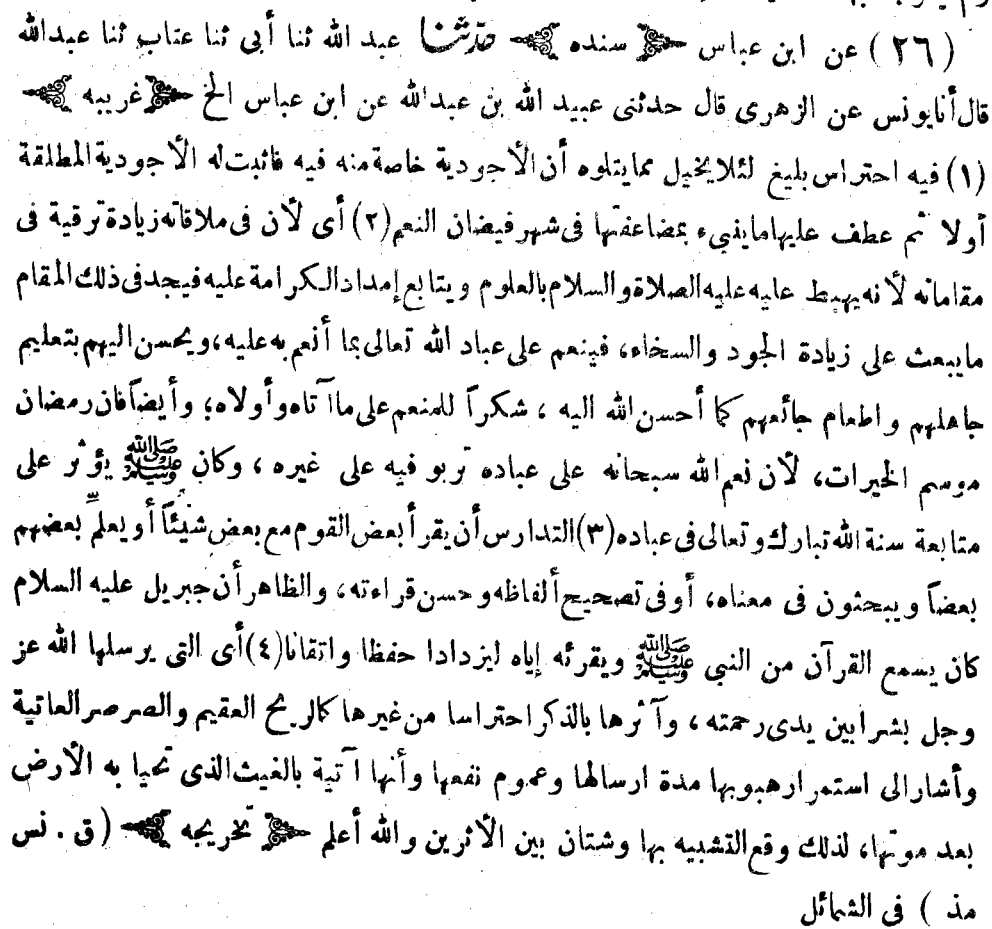 (٢٦) عن ابن عباس سنده حدثنا عبد الله ثنا أبى ثنا عتاب ثنا عبدالله
قال أنا يونس عن الزهرى قال حدثنى عبيد الله بن عبدالله عن ابن عباس الخ غريبه
(١) فيه احتراس بليغ لئلا يخيل مما يتلوه أن الأجودية خاصة منه فيه فاثبت له الأجودية المطلقة
أولا ثم عطف عليها ما ينبىء بمضاعفتها فى شهر فيضان النعم (٢) أى لأن فى ملاقاته زيادة ترقية فى
مقاماته لأنه يهبط عليه عليه الصلاة والسلام بالعلوم ويتابع إمداد الكرامة عليه فيجد فى ذلك المقام
ما يبعث على زيادة الجود والسخاء، فينعم على عباد الله تعالى بما أنعم به عليه، ويحسن اليهم بتعليم
جاهلهم واطعام جائعهم كما أحسن الله اليه، شكراً للمنعم على ما آتاه وأولاه؛ وأيضاً فان رمضان
موسم الخيرات، لأن نعم الله سبحانه على عباده تربو فيه على غيره، وكان ﷺ يؤثر على
متابعة سنة الله تبارك وتعالى فى عباده (٣) التدارس أن يقرأ بعض القوم مع بعض شيئاً أو يعلّم بعضهم
بعضاً ويبحثون فى معناه، أو فى تصحيح ألفاظه وحسن قراءته، والظاهر أن جبريل عليه السلام
كان يسمع القرآن من النبى ﷺ ويقرئه إياه ليزدادا حفظا واتقانا (٤) أى التى يرسلها الله عز
وجل بشرا بين يدى رحمته، وآثرها بالذكر احتراسا من غيرها كالريح العقيم والصرصر العاتية
وأشار الى استمرار هبوبها مدة ارسالها وعموم نفعها وأنها آتية بالغيث الذى تحيا به الأرض
بعد موتها، لذلك وقع التشبيه بها وشتان بين الأثرين والله أعلم تخريجه (ق . نس
مذ ) فى الشمائل